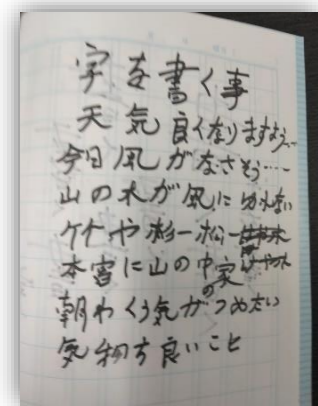 字を書く事
天気良くなりますよう…
今日風がなさそう……
山の木が風に切れない
竹や杉一松一
本宮に山の中の家
朝わくう気がつめたい
気持ち良いこと